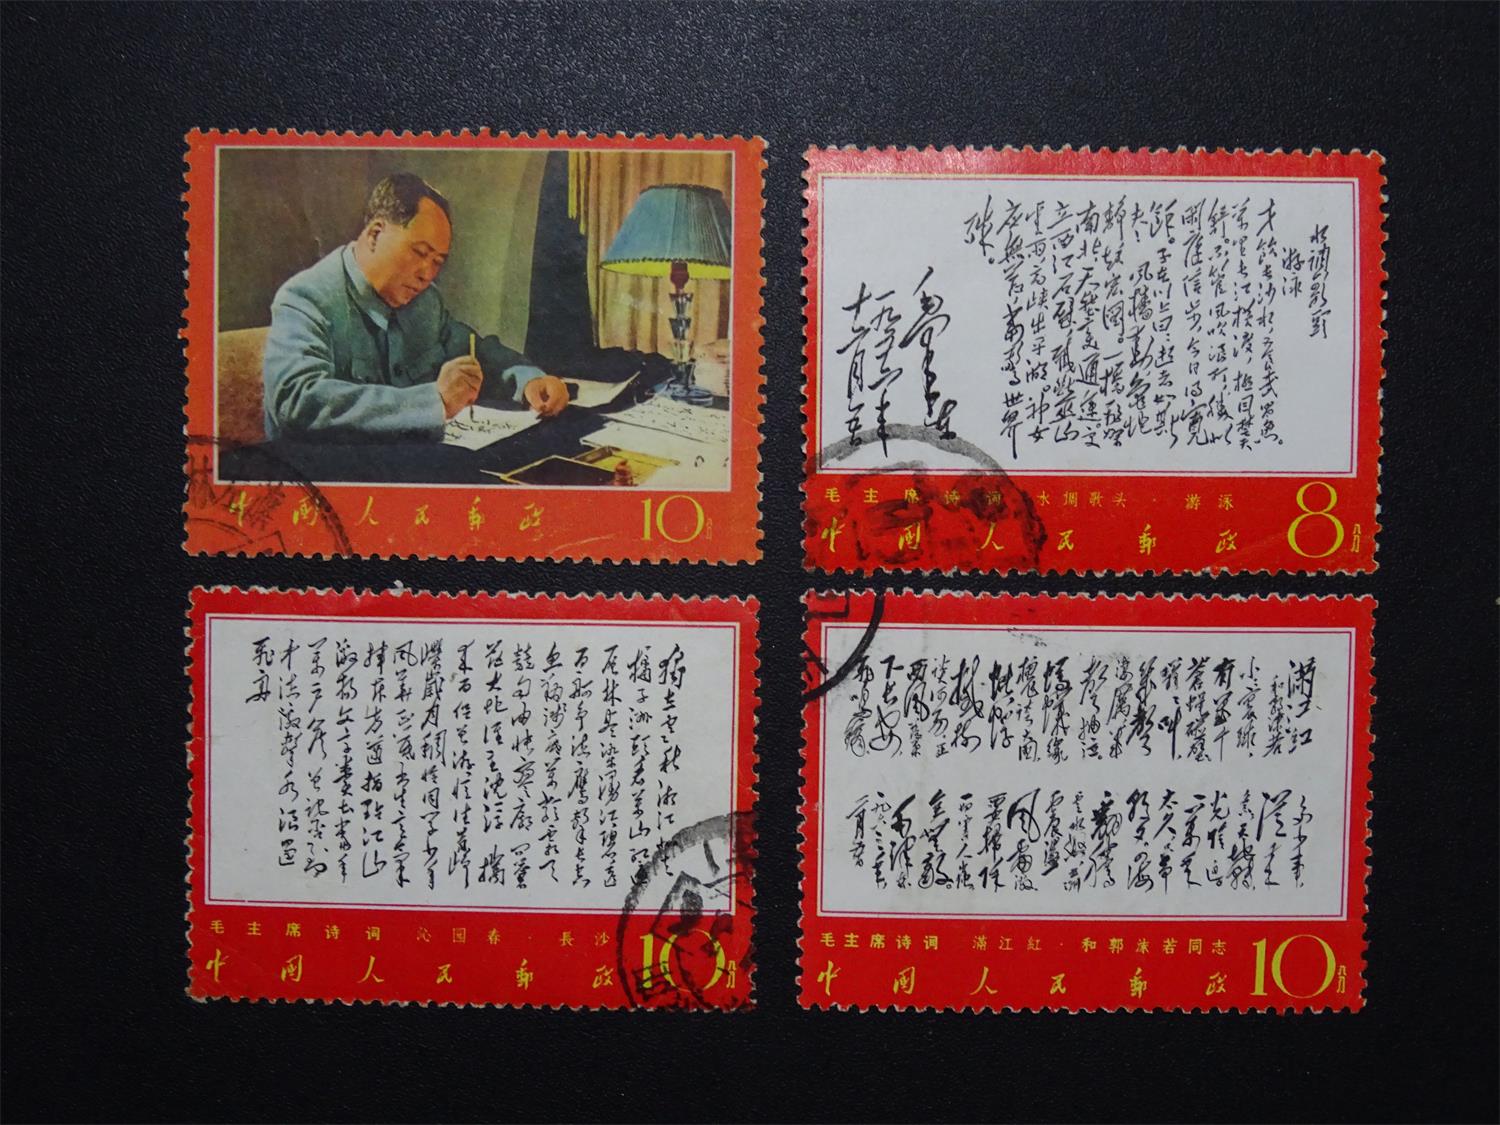 中国人民邮政
10分
水调歌头
游泳
才饮长沙水，又食武昌鱼。
万里长江横渡，极目楚天
舒。不管风吹浪打，胜似
闲庭信步，今日得宽
馀。子在川上曰：逝者如斯
夫！风樯动，龟蛇
静，起宏图。一桥飞架
南北，天堑变通途。更
立西江石壁，截断巫山
云雨，高峡出平湖。神女
应无恙，当惊世界
殊。
毛泽东
一九五六年
十二月五日
毛主席诗词 水调歌头·游泳
中国人民邮政
8分
独立寒秋湘江北去
橘子洲头看万山红遍
层林尽染漫江碧透
百舸争流鹰击长空
鱼翔浅底万类霜天
竞自由怅寥廓问苍
茫大地谁主沉浮 携
来百侣曾游忆往昔峥
嵘岁月稠恰同学少年
风华正茂书生意气
挥斥方遒指点江山
激扬文字粪土当年
万户侯曾记否到
中流击水浪遏
飞舟
毛主席诗词 沁园春·長沙
中国人民邮政
10分
满江红
和郭沫若
小小寰球，
有几个
苍蝇碰壁
嗡嗡叫
几声
凄厉，几
声抽泣
蚂蚁缘
槐夸大国
蚍蜉
撼树
谈何易。正
西风落叶
下长安，
飞鸣镝
多少事，
从来
急。天地转
光阴迫
一万年
太久，只争
朝夕。四海
翻腾
云水怒，五洲
震荡
风雷激
要扫除
一切害人虫
全无敌。
毛泽东
一九六三年
毛主席诗词 满江红·和郭沫若同志
中国人民邮政
10分